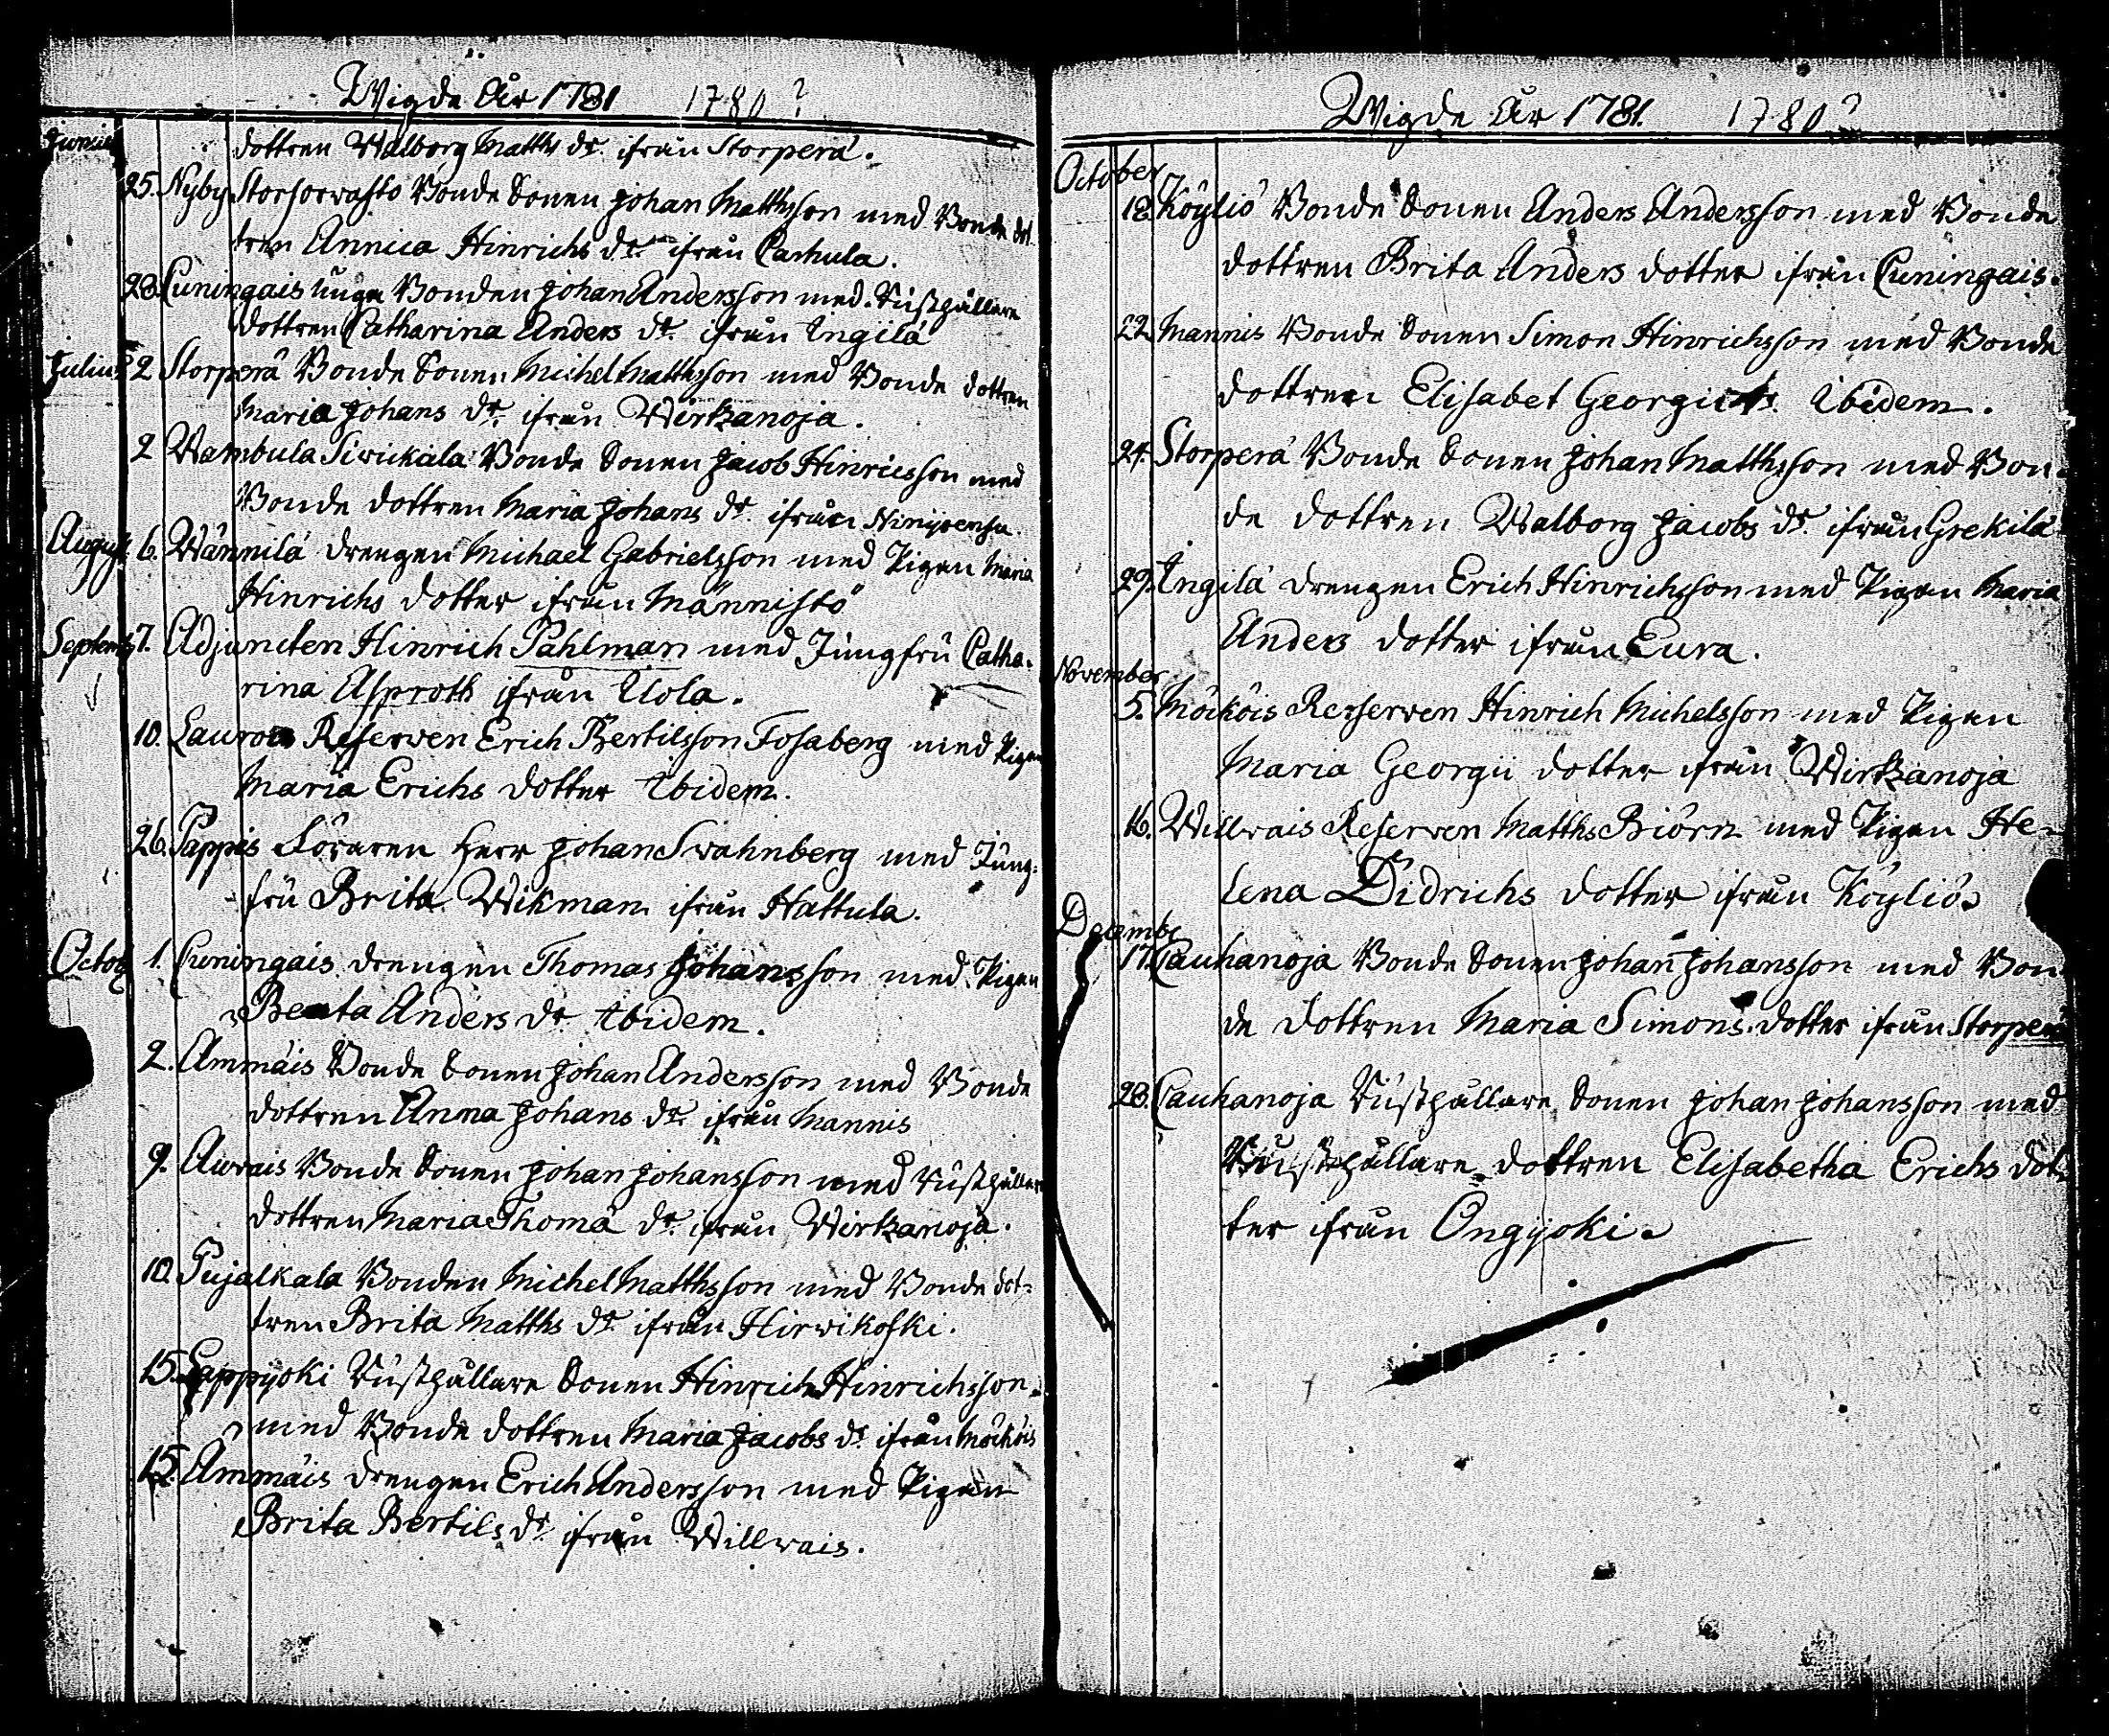 Wigde År 1781 1780?
Junius
dottren Walborg Matths dr. ifrån Storperä.
25. Nyby Storsorwasto Bonde Sonen Johan Matthsson med Bonde dot-
tren Annica Hinrichs dr. ifrån Carhula.
28. Cuningais unga Bonden Johan Andersson med Rusthållare
dottren Catharina Anders dr. ifrån Ingilä
Julius 2 Storperä Bonde Sonen Michel Matthsson med Bonde dottren
Maria Johans dr. ifrån Wirtzanoja.
2 Wambula Sirickala Bonde Sonen Jacob Hinricsson med
Bonde dottren Maria Johans dr. ifrån
August. 6. Wännilä drengen Michael Gabrielsson med Pigan Maria
Hinrichs dotter ifrån Männistö
Septemb 7. Adjuncten Hinrich Pahlman med Jungfru Catha-
rina Asproth ifrån Uola.
10. Lauroen Reserven Erich Bertilsson Fosaberg med Pigan
Maria Erichs dotter ibidem.
26. Pappis Föraren Herr Johan Swahnberg med Jung-
fru Brita Wikman ifrån Hattula.
Octob 1. Cuningais drengen Thomas Johansson med Pigan
Beata Anders dr ibidem.
2. Ammäis Bonde Sonen Johan Andersson med Bonde
dottren Anna Johans dr. ifrån Mannis
9. Auvais Bonde Sonen Johan Johansson med Rusthållare
dottren Maria Thomä dr. ifrån Wirtzanoja.
10. Pujalkala Bonden Michel Matthsson med Bonde dot-
tren Brita Matths dr. ifrån Hirwikoski.
15. Lappijoki Rusthållare Sonen Hinrich Hinrichsson
med Bonde dottren Maria Jacobs dr. ifrån Möcköis
15. Ammäis drengen Erich Andersson med Pigan
Brita Bertils dr. ifrån Willwais.
Wigde År 1781. 1780?
October
18. Köyliö Bonde Sonen Anders Andersson med Bonde
dottren Brita Anders dotter ifrån Cuningais.
22. Mannis Bonde Sonen Simon Hinrichsson med Bonde
dottren Elisabet Georgii dr. ibidem.
24. Storperä Bonde Sonen Johan Matthsson med Bon-
de dottren Walborg Jacobs dr. ifrån Grekilä
29. Ingilä drengen Erich Hinrichsson med Pigan Maria
Anders dotter ifrån Eura.
November
5. Möcköis Reserven Hinrich Michelsson med Pigan
Maria Georgii dotter ifrån Wirtzanoja
16. Willwais Reserven Matths Biörn med Pigan He-
lena Didrichs dotter ifrån Köyliö.
Decembr
17. Cauhanoja Bonde Sonen Johan Johansson med Bon-
de dottren Maria Simons dotter ifrån Storperä
28. Cauhanoja Rusthållare Sonen Johan Johansson med
Rusthållare dottren Elisabetha Erichs dot-
ter ifrån Ongijoki.